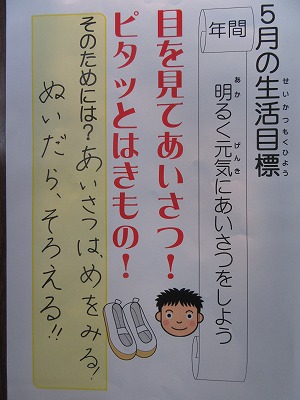 5月の生活目標
せいかつもくひょう
年間
明るく元気にあいさつをしよう
あか げんき
目を見てあいさつ！
ピタッとはきもの！
そのためには？あいさつは、めをみる！
ぬいだら、そろえる!!